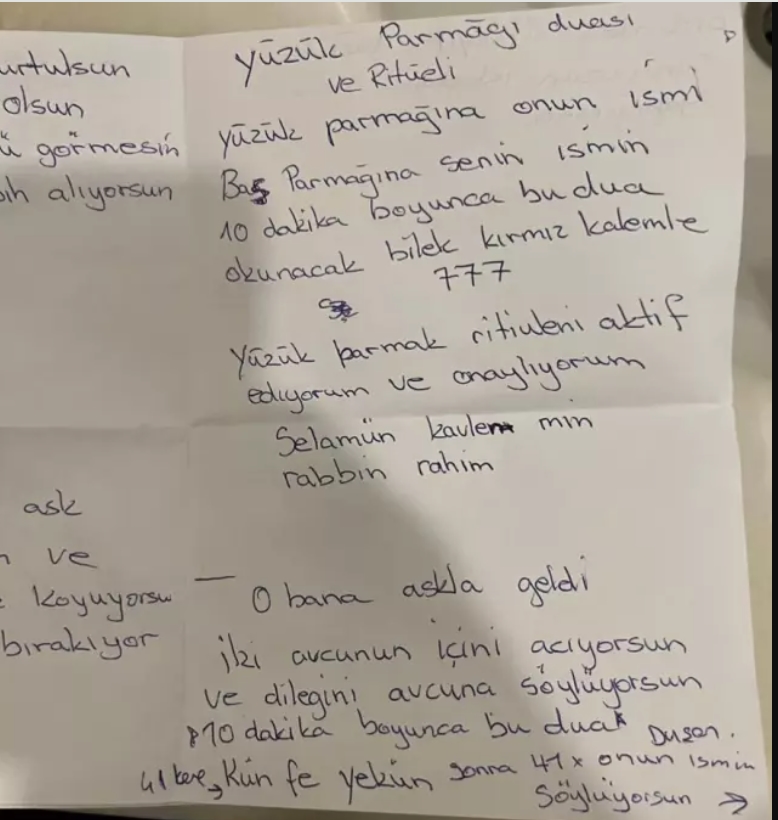 urtulsun
olsun
ü görmesin
ih alıyorsun
ask
ve
koyuyorsu
bırakıyor
yüzük Parmağı duası
ve Ritüeli
yüzük parmağına onun ismi
Baş Parmağına senin ismin
10 dakika boyunca bu dua
okunacak bilek kırmız kalemle
777
yüzük parmak ritiuleni aktif
ediyorum ve onaylıyorum
Selamün kavlem min
rabbin rahim
O bana askla geldi
iki avcunun içini acıyorsun
ve dilegini avcuna söylüyorsun
10 dakika boyunca bu dua
41 kere Kün fe yekün sonra 41x onun ismin
söylüyorsun →